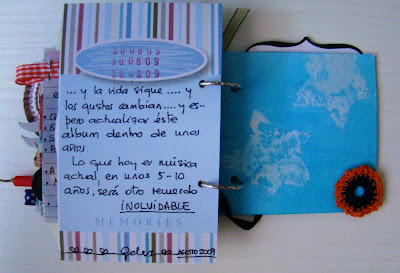 300809
300809
300809
... y la vida sigue .... y
los gustos cambian .... y es-
pero actualizar éste
álbum dentro de unos
años.
Lo que hoy es música
actual, en unos 5-10
años, será otro recuerdo
INOLVIDABLE
MEMORIES
AGOSTO 2009